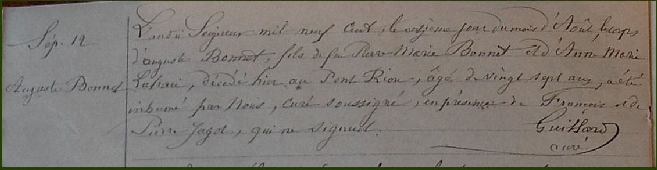 Sép. 12
Auguste Bonnet
L'an du Seigneur mil neuf cent, le onzième jour du mois d'Août, le corps
d'auguste Bonnet, fils de feu Pierre Marie Bonnet et d'Anne Marie
décédé hier au Pont Riou, âgé de vingt sept ans, a été
inhumé par Nous, curé soussigné, en présence de François et de
Pierre Jagot, qui ne signent.
Guillard
curé